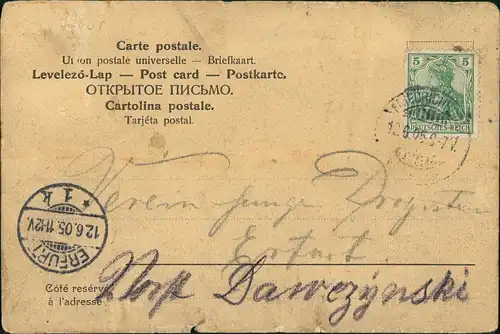 Carte postale.
Union postale universelle — Briefkaart.
Levelező-Lap — Post card — Postkarte.
ОТКРЫТОЕ ПИСЬМО.
Cartolina postale.
Tarjéta postal.
5 5
DEUTSCHES REICH
Verein junger Drogisten
Erfurt.
ERFURT
12.6.05.11-12V.
* 1 k
Côté reservé
à l'adresse
Dawczýnski